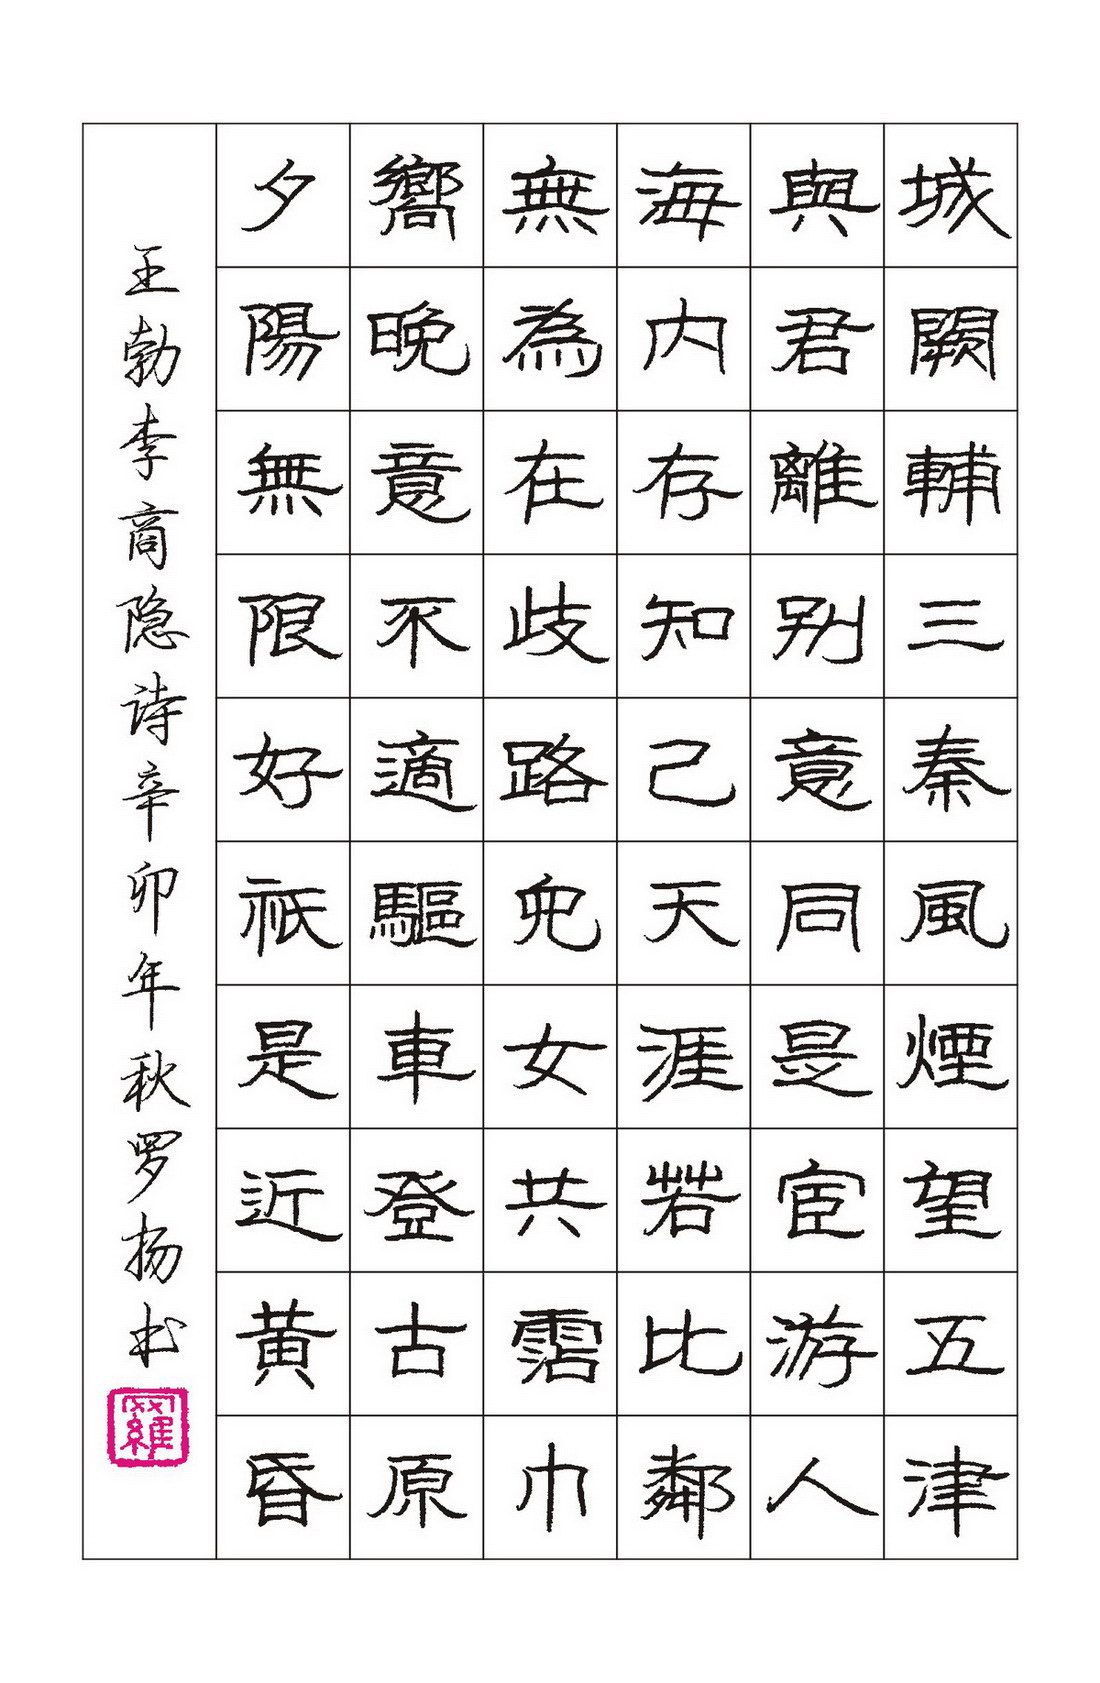 城闕輔三秦風煙望五津
與君離別意同是宦游人
海內存知己天涯若比鄰
無為在歧路兒女共霑巾
嚮晚意不適驅車登古原
夕陽無限好祇是近黃昏
王勃李商隐诗辛卯年秋罗扬书
羅